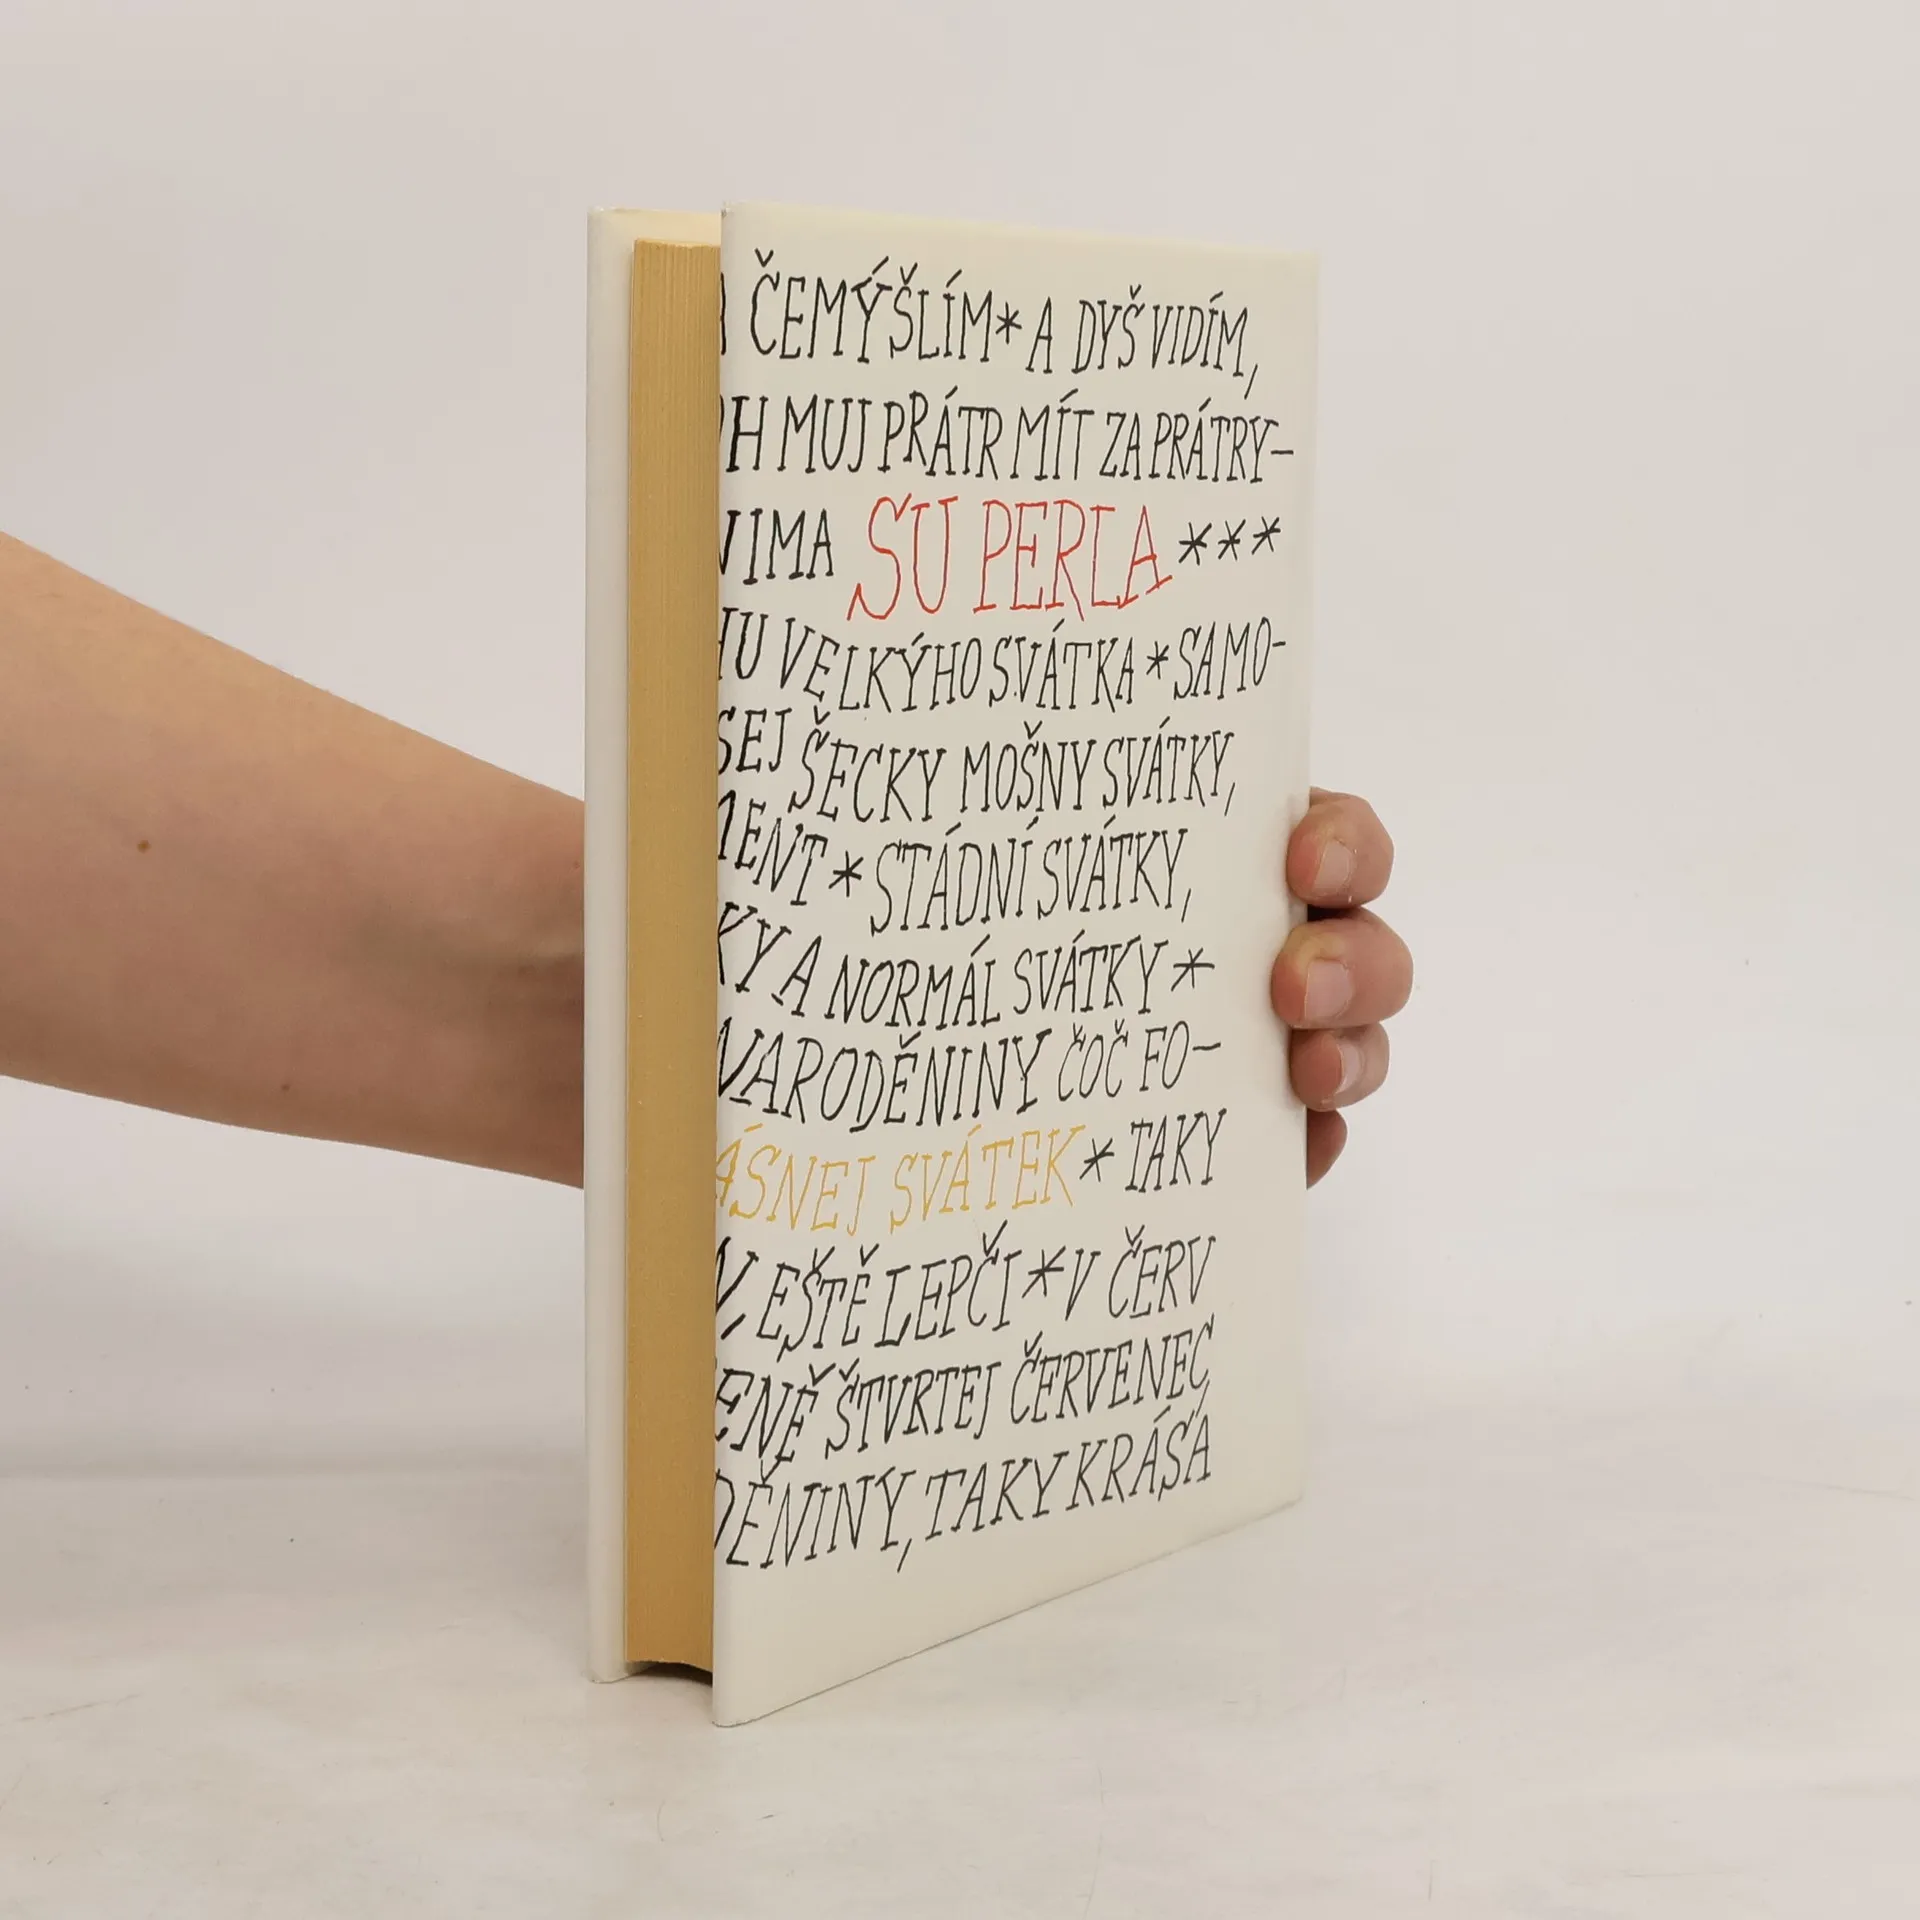 ČEMÝŠLÍM * A DYŠ VIDÍM,
H MUJ PRÁTR MÍT ZA PRÁTRY-
NIMA SU PERLA ***
HU VELKÝHO SVÁTKA * SAMO-
SEJ ŠECKY MOŠNY SVÁTKY,
MENT * STÁDNÍ SVÁTKY,
KY A NORMÁL SVÁTKY *
NARODĚNINY ČOČ FO-
ÁSNEJ SVÁTEK * TAKY
N, EŠTĚ LEPČI * V ČERV
ENĚ ŠTVRTEJ ČERVENEC,
DĚNINY, TAKY KRÁSA